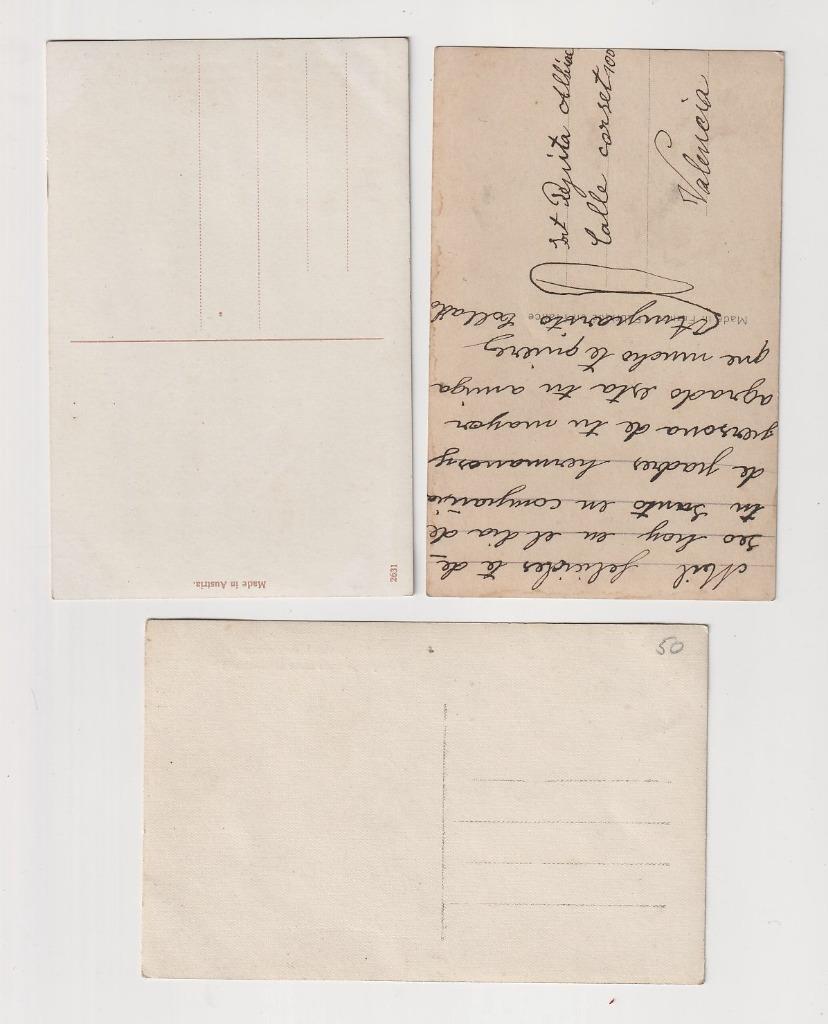 Made in Austria.
2631
Mil felicides te de_
seo hoy en el dia de
tu Santo en compañia
de padres hermanos y
persona de tu mayor
agrado esta tu amiga
que mucho te quiere
Amparito Collado
Srt Pepita
Calle corset 100
Valencia
Made in France
50